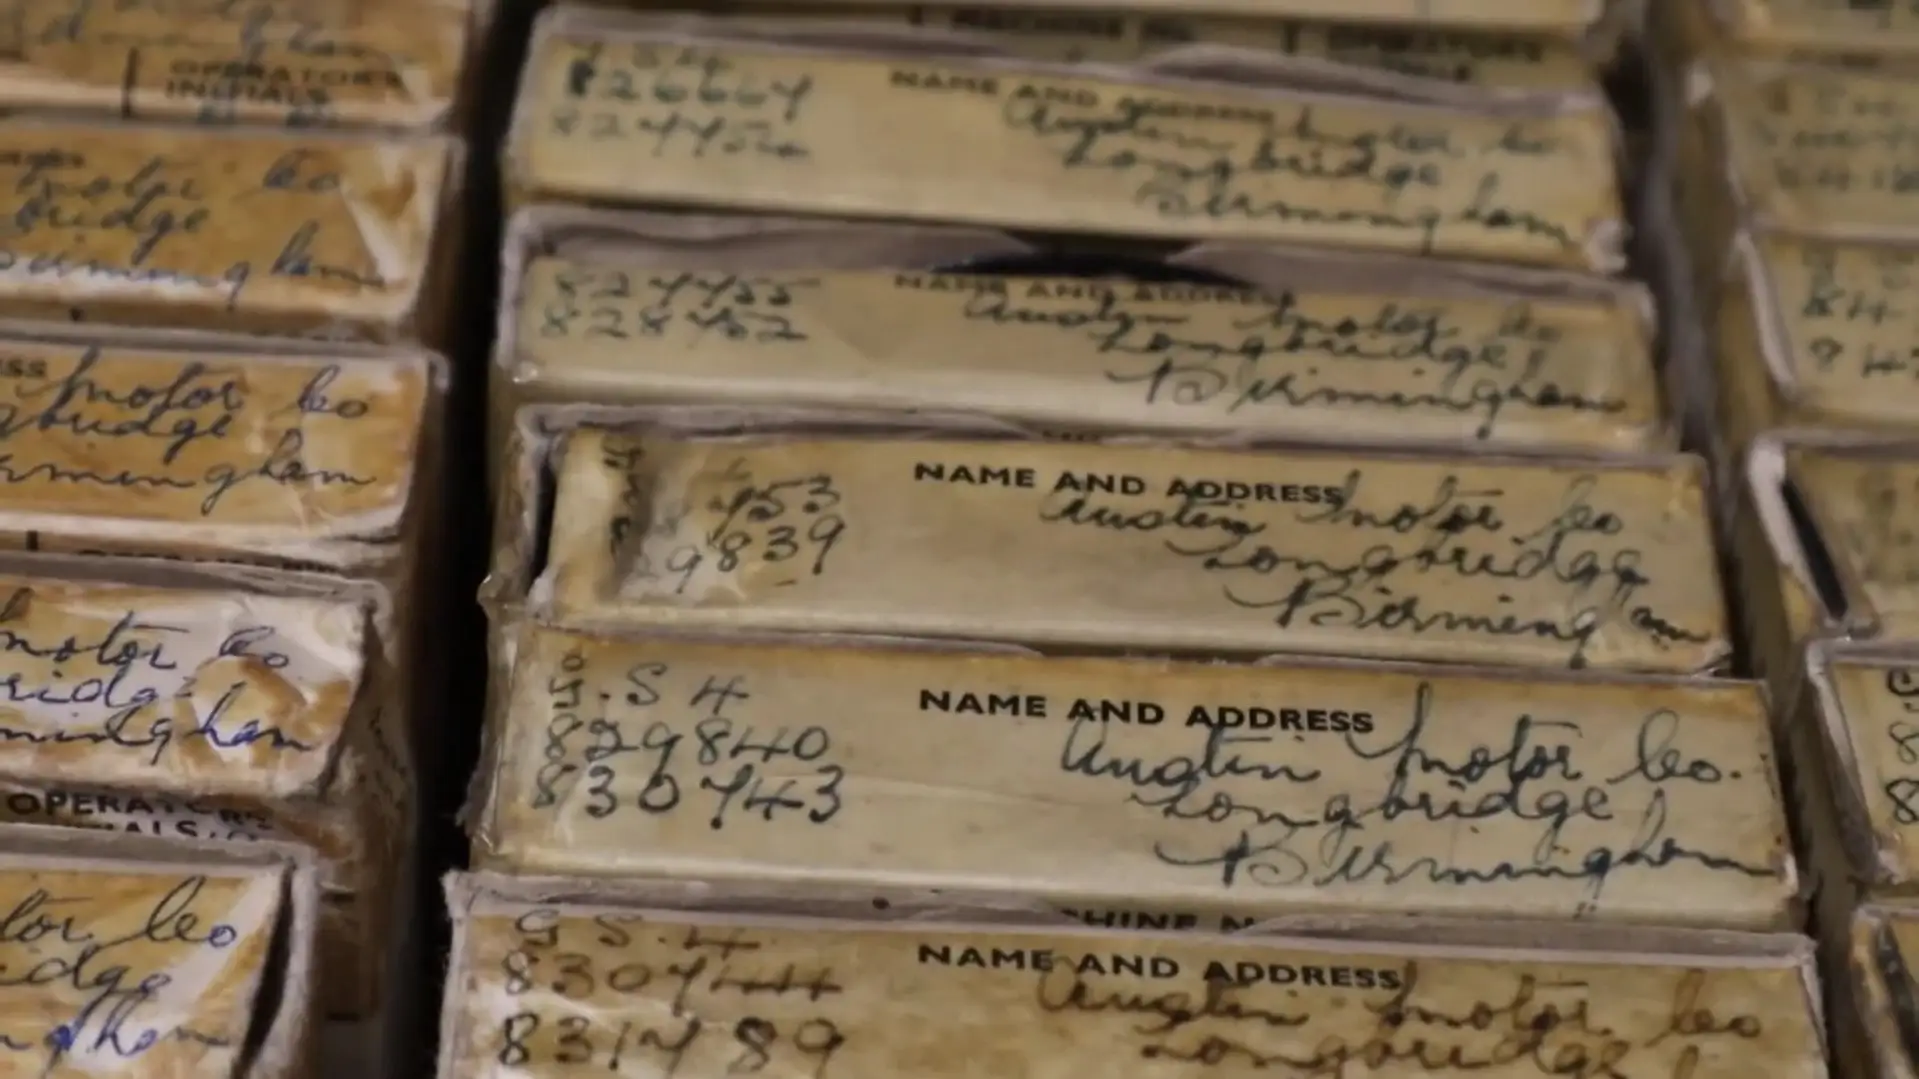 OPERATOR'S
INITIALS
motor Co
bridge
Birmingham
motor Co
gbridge
rmingham
motor Co
ridg
mingham
OPERATOR'S
IALS
tor Co
idge
gham
MACHINE NO.
OPERATOR'S
826664
NAME AND ADDRESS
Austin Motor Co
Longbridge
Birmingham
824455
828452
NAME AND ADDRESS
Austin Motor Co
Longbridge
Birmingham
453
9839
NAME AND ADDRESS
Austin Motor Co
Longbridge
Birmingham
G.S 4
829840
830743
NAME AND ADDRESS
Austin Motor Co.
Longbridge
Birmingham
CHINE N
G S.4
830744
831789
NAME AND ADDRESS
Austin Motor Co
Longbridge